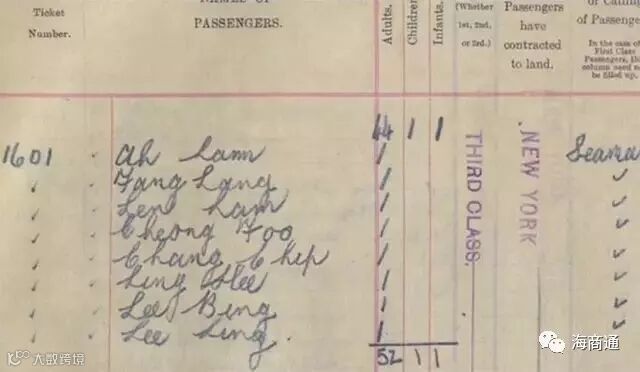 NAMES OF
or Calling
Ticket
Number.
PASSENGERS.
Adults.
Children
Infants.
(Whether
1st, 2nd,
or 3rd.)
Passengers
have
contracted
to land.
of Passenge
In the case of
First Class
Passengers, this
column need not
be filled up.
44 1 1
1601 Ah Lam / Seama
Fang Lang /
Len Lam /
Cheong Foo /
Chang Chip /
Ling Hee /
Lee Bing /
Lee Ling. /
52 1 1
THIRD CLASS.
NEW YORK
大数跨境
海商通